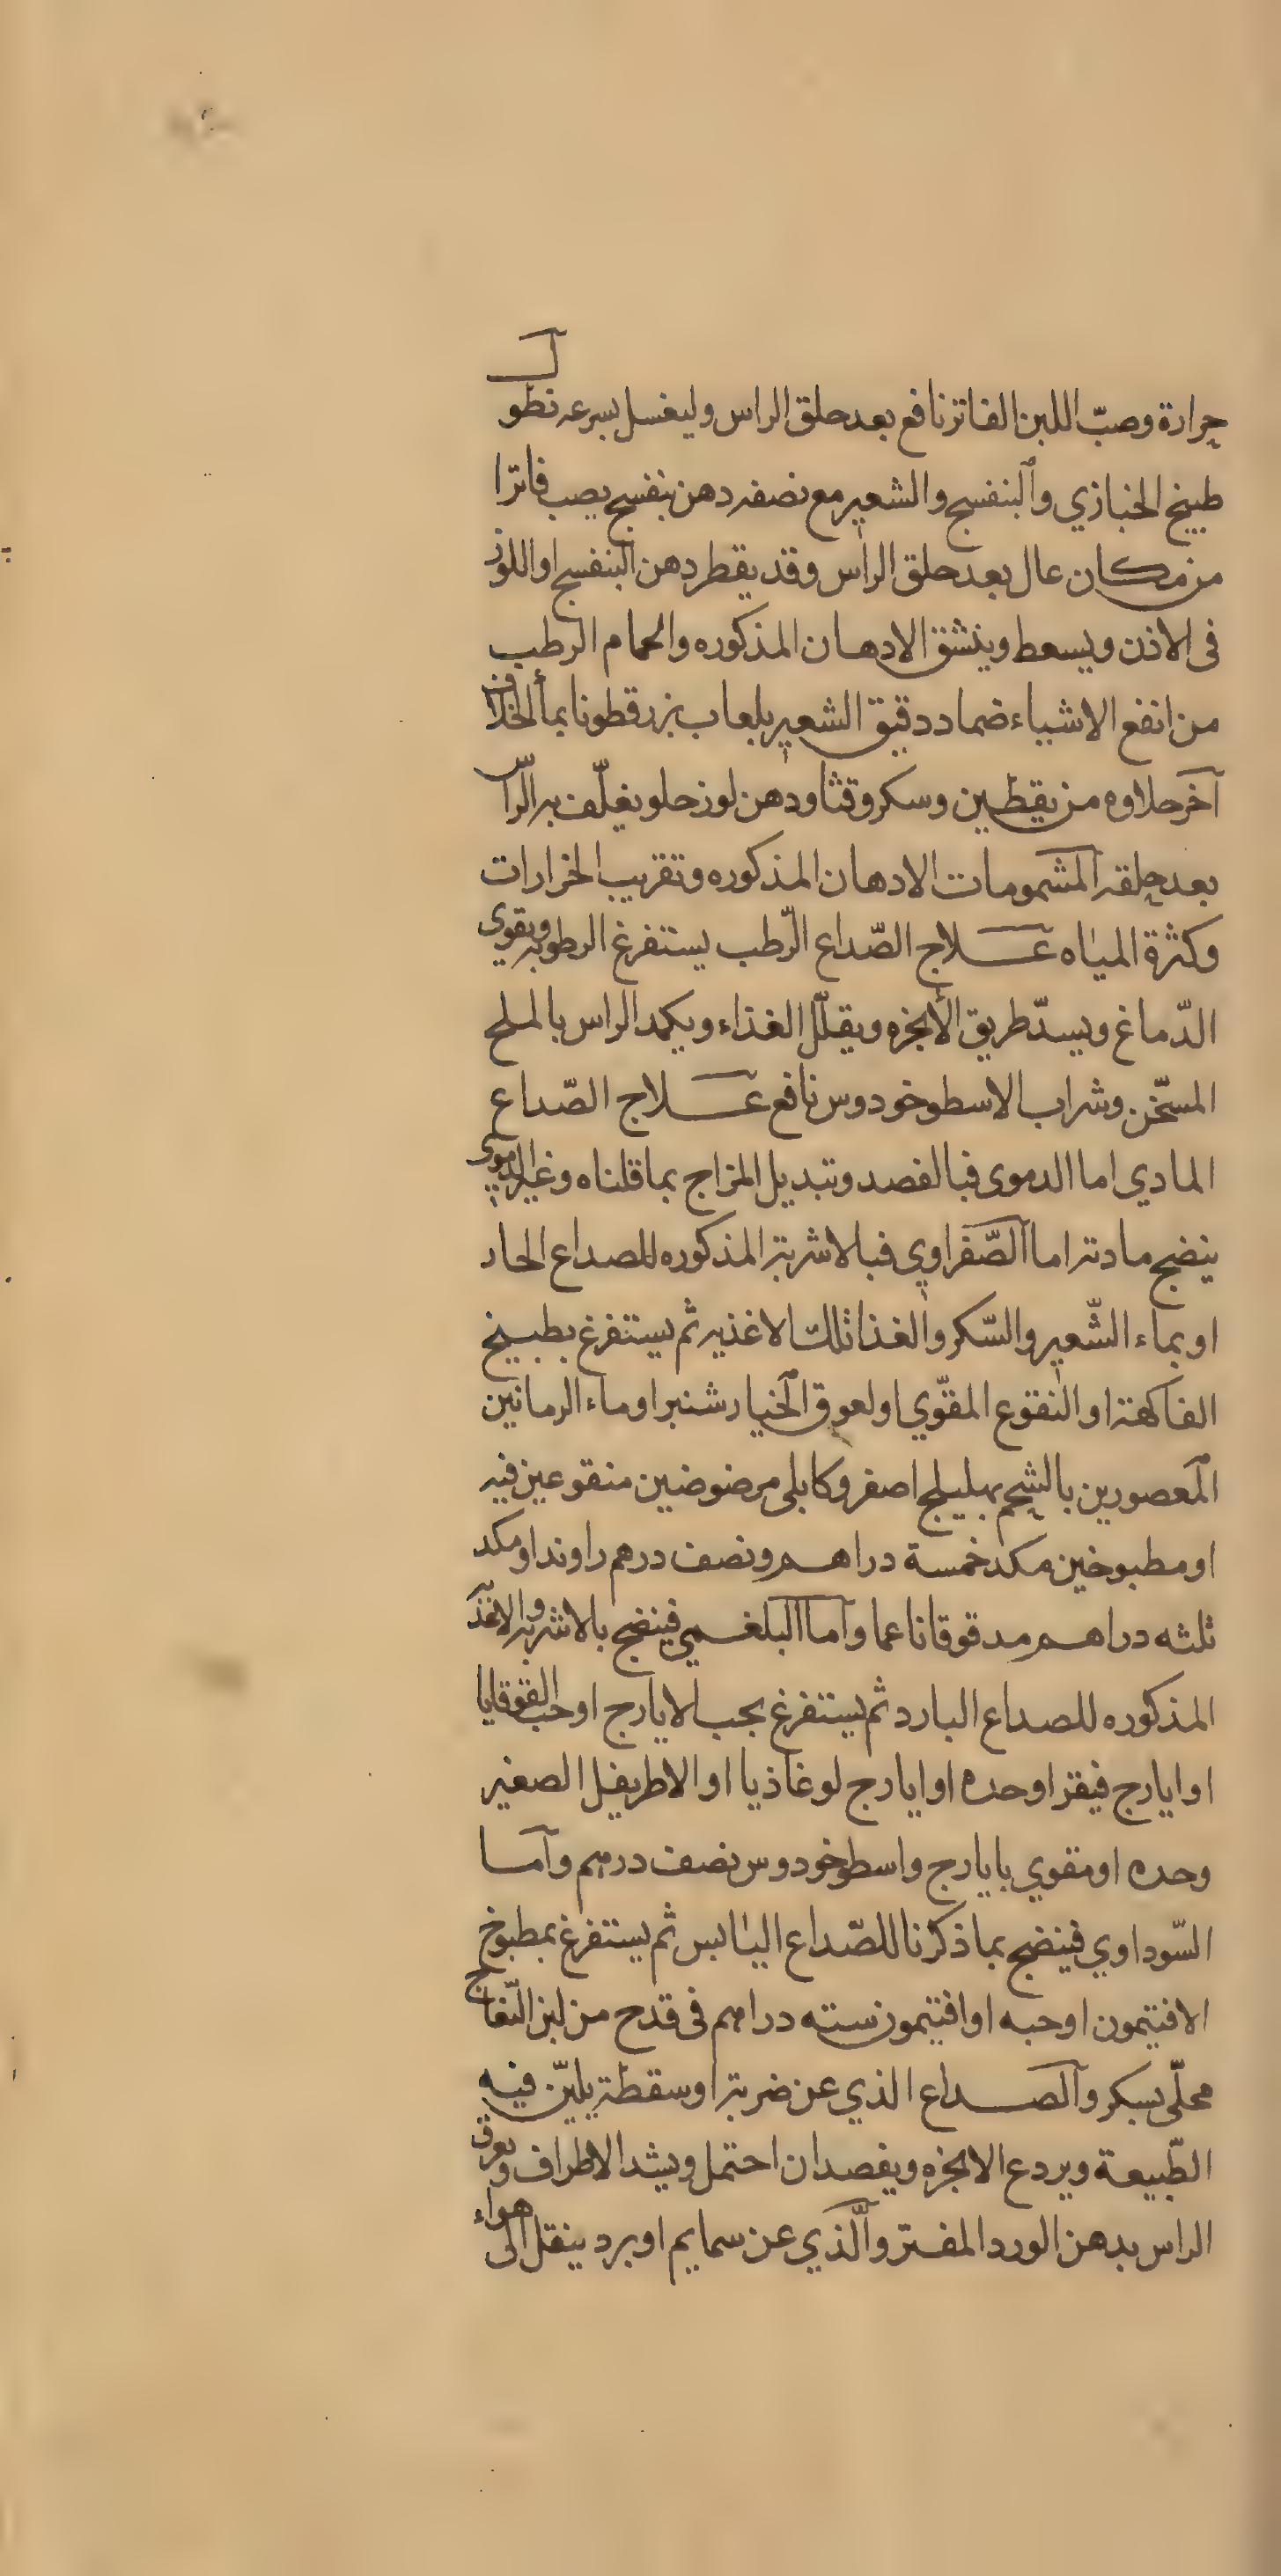 حرارة وصبّ اللبن الفاتر نافع بعد حلق الراس وليغسل بسرعه نطول
طبيخ الخبازي والبنفسج والشعير مع نصفه دهن بنفسج يصب فاترا
من مكان عال بعد حلق الراس وقد يقطر دهن البنفسج او اللوز
فى الاذن ويسعط وينشق الادهان المذكوره والحمام الرطب
من انفع الاشياء ضماد دقيق الشعير بلعاب بزرقطونا بمأ الخلاف
آخر حلاوه من يقطين وسكر وقثا ودهن لوز حلو يغلّف به الرّاس
بعد حلقه المشمومات الادهان المذكوره وتقريب الخرارات
وكثرة المياه عـلاج الصّداع الرّطب يستفرغ الرطوبه ويقوى
الدّماغ ويسدّ طريق الأبخره ويقلّل الغذاء ويكمد الراس بالملح
المسخّن وشراب الاسطوخودوس نافع عـلاج الصّداع
المادي اما الدموى فبالفصد وتبديل المزاج بما قلناه وغير الدموى
ينضج مادته اما الصّفراوي فبالاشربة المذكوره للصداع الحاد
او بماء الشّعير والسّكر والغذا تلك الاغذيه ثم يستفرغ بطبيخ
الفاكهة او النقوع المقوّي او لعوق الخيارشنبر او ماء الرمانين
المعصورين بالشحم بهليلج اصفر وكابلى مرضوضين منقوعين فيه
او مطبوخين مكد خمسة دراهم ونصف درهم راوند او مكد
ثلثه دراهم مدقوقا ناعما واما البلغمي فينضج بالاشربه والاغذ
المذكوره للصداع البارد ثم يستفرغ بحب الايارج او حب القوقايا
او ايارج فيقرا وحده او ايارج لوغاذيا او الاطريفل الصغير
وحده او مقوي بايارج واسطوخودوس نصف درهم واما
السّوداوي فينضج بما ذكرنا للصّداع اليابس ثم يستفرغ بمطبوخ
الافتيمون او حبه او افتيمون سته دراهم فى قدح من لبن اللّقاح
محلّى بسكر والصداع الذي عن ضربة او سقطة يليّن فيه
الطّبيعة ويردع الابخره ويفصد ان احتمل ويشد الاطراف ويعرق
الراس بدهن الورد المفتر والّذي عن سمايم او برد ينقل الى هواء